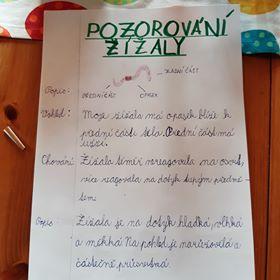 POZOROVÁNÍ
ŽÍŽALY
ZADNÍ ČÁST
Popis:
PŘEDNÍ ČÁST OPASEK
Vzhled: Moje žížala má opasek blíže k
přední části těla. Přední část má
užší.
Chování: Žížala téměř nereagovala na ovoce,
více reagovala na dotyk tupým předmě-
tem.
Popis: Žížala je na dotyk hladká, vlhká
a měkká. Na pohled je narůžovělá a
částečně průsvitná.